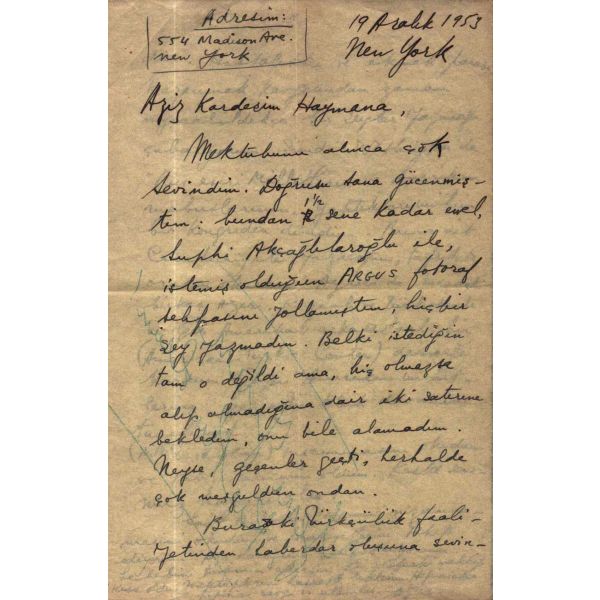 Adresim:
554 Madison Ave.
New York
19 Aralık 1953
New York
Aziz Kardeşim Haymana,
Mektubunu alınca çok
sevindim. Doğrusu sana gücenmiş-
tim: bundan 1½ sene kadar evel,
Suphi Akçağlılaroğlu ile,
istemiş olduğun ARGUS fotoraf
sehpasını yollamıştım, hiç bir
şey yazmadın. Belki istediğin
tam o değildi ama, hiç olmazsa
alıp almadığına dair iki satırını
bekledim, onu bile alamadım.
Neyse, geçenler geçti, herhalde
çok meşguldün ondan.
Buradaki Türkçülük faali-
yetinden haberdar oluşuna sevin-